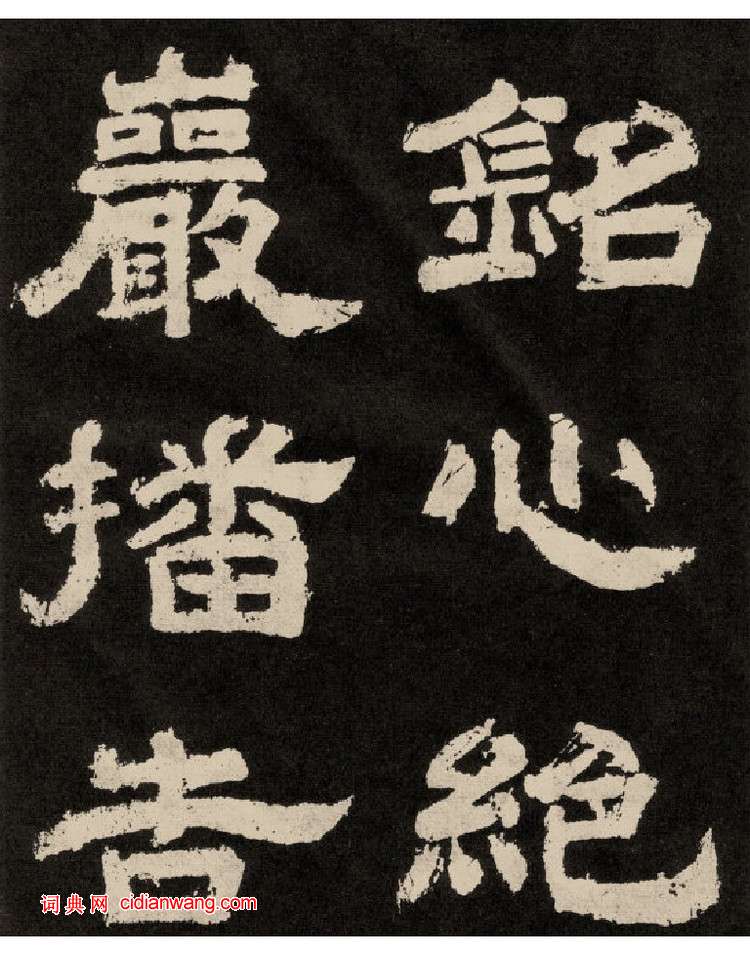 銘心絕
巖播告
词典网 cidianwang.com